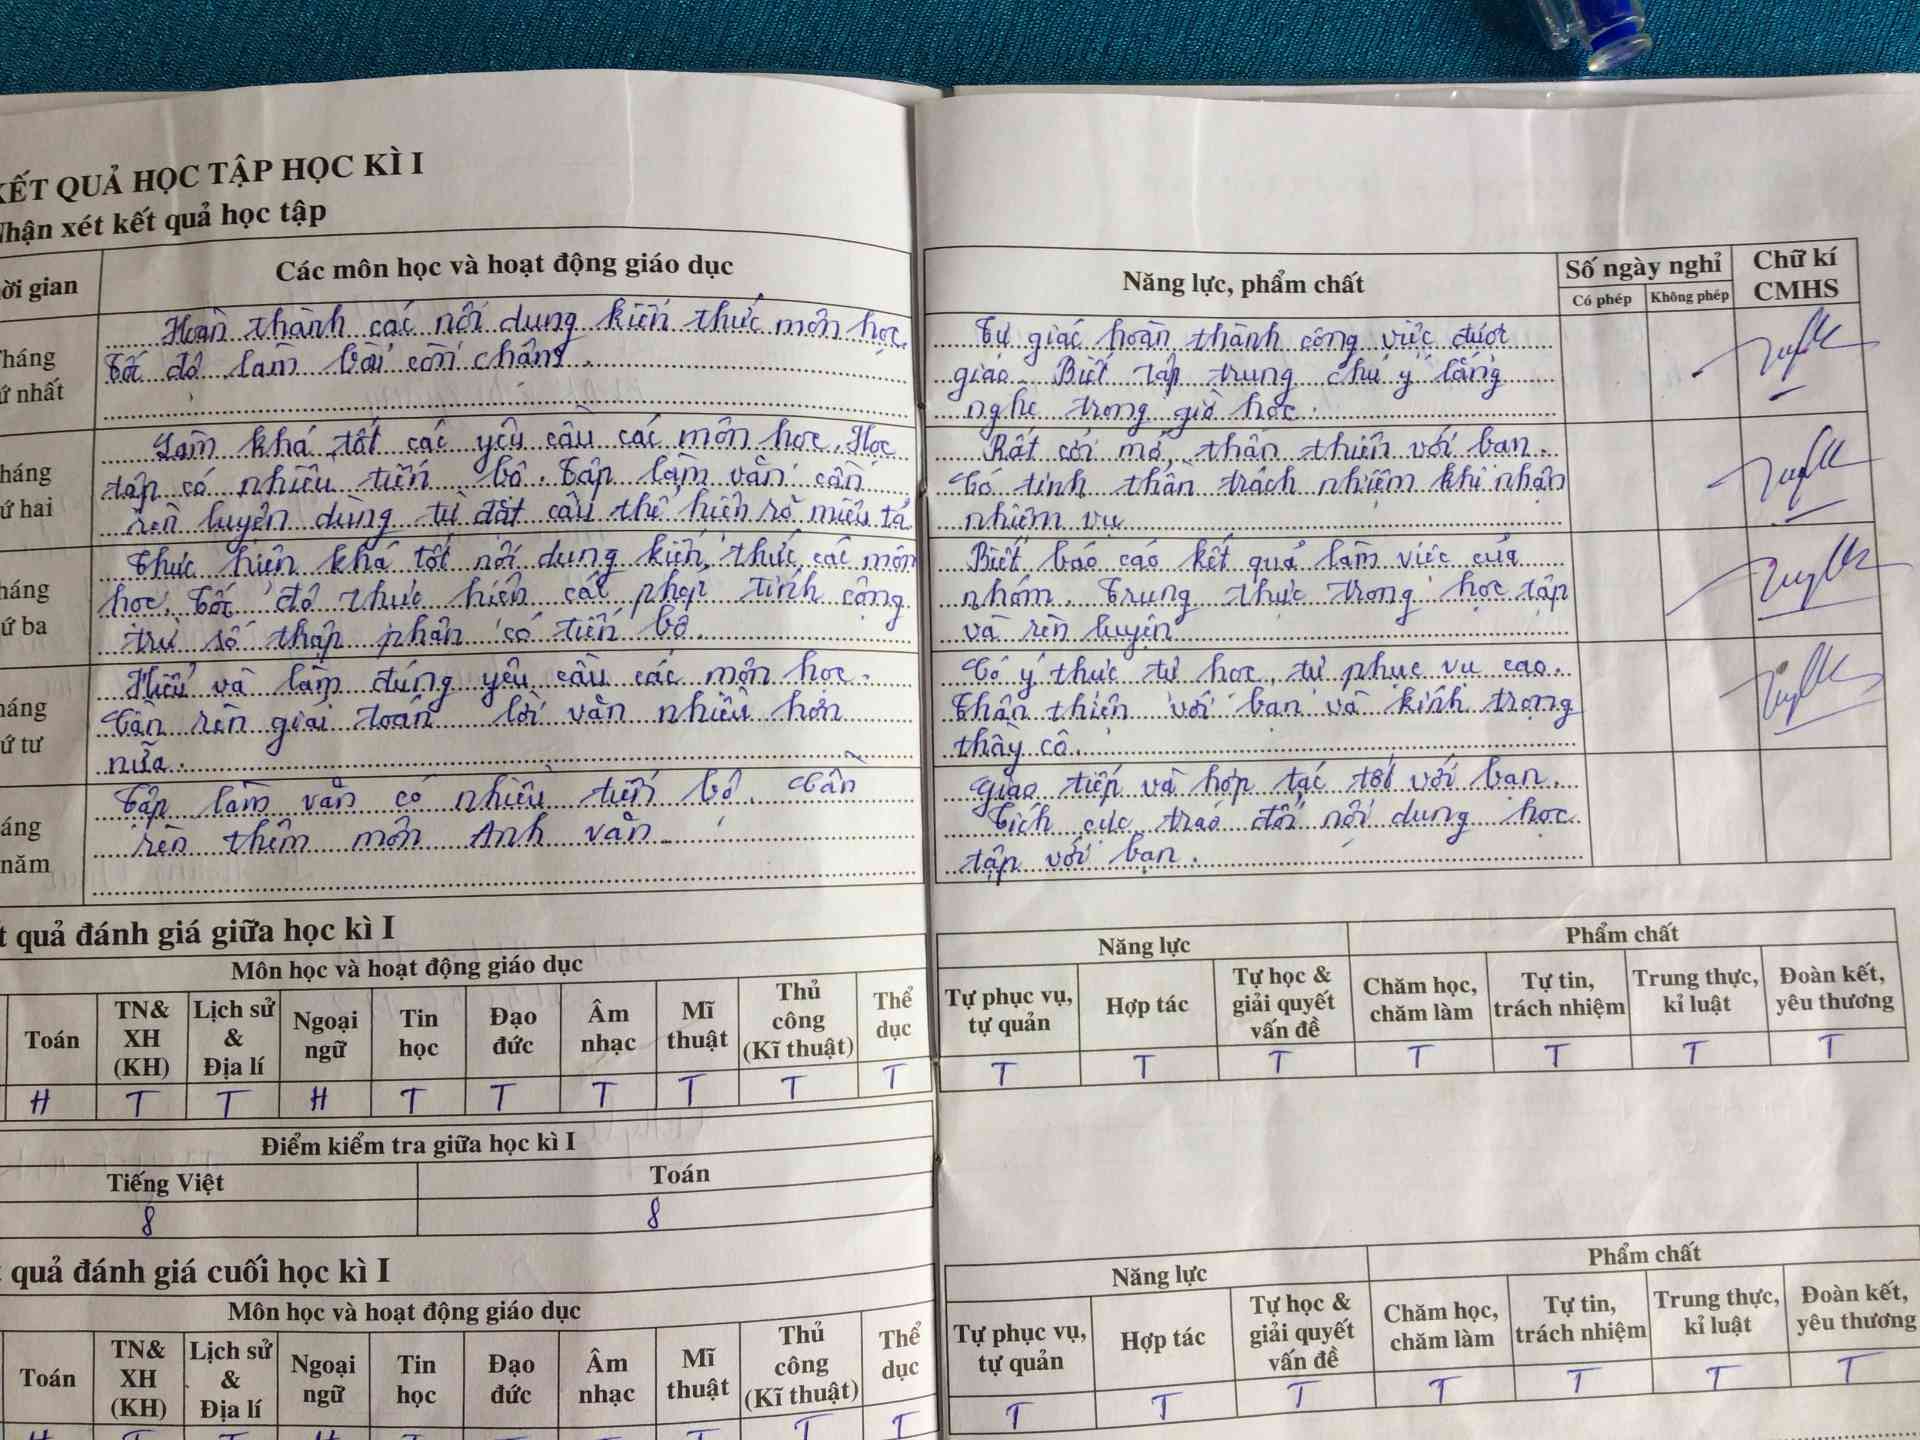 KẾT QUẢ HỌC TẬP HỌC KÌ I
Nhận xét kết quả học tập
ời gian
Các môn học và hoạt động giáo dục
háng
ứ nhất
Hoàn thành các nội dung kiến thức môn học.
Tốc độ làm bài còn chậm.
háng
ứ hai
Làm khá tốt các yêu cầu các môn học. Học
tập có nhiều tiến bộ. Tập làm văn cần
rèn luyện dùng từ đặt câu thể hiện rõ miêu tả
háng
ứ ba
Thực hiện khá tốt nội dung kiến thức các môn
học. Tốc độ thực hiện các phép tính cộng
trừ số thập phân có tiến bộ.
háng
ứ tư
Hiểu và làm đúng yêu cầu các môn học.
Cần rèn giải toán lời văn nhiều hơn
nữa.
áng
năm
Tập làm văn có nhiều tiến bộ. Cần
rèn thêm môn Anh văn.
t quả đánh giá giữa học kì I
Môn học và hoạt động giáo dục
Toán
TN& XH (KH)
Lịch sử & Địa lí
Ngoại ngữ
Tin học
Đạo đức
Âm nhạc
Mĩ thuật
Thủ công (Kĩ thuật)
Thể dục
H T T H T T T T T T
Điểm kiểm tra giữa học kì I
Tiếng Việt Toán
8 8
t quả đánh giá cuối học kì I
Môn học và hoạt động giáo dục
Toán
TN& XH (KH)
Lịch sử & Địa lí
Ngoại ngữ
Tin học
Đạo đức
Âm nhạc
Mĩ thuật
Thủ công (Kĩ thuật)
Thể dục
H T T H T T T T T T
Năng lực, phẩm chất
Số ngày nghỉ
Có phép Không phép
Chữ kí
CMHS
Tự giác hoàn thành công việc được
giao. Biết tập trung chú ý lắng
nghe trong giờ học.
Rất cởi mở, thân thiện với bạn.
Có tinh thần trách nhiệm khi nhận
nhiệm vụ
Biết báo cáo kết quả làm việc của
nhóm. Trung thực trong học tập
và rèn luyện
Có ý thức tự học, tự phục vụ cao.
Thân thiện với bạn và kính trọng
thầy cô.
Giao tiếp và hợp tác tốt với bạn.
Tích cực trao đổi nội dung học
tập với bạn.
Năng lực Phẩm chất
Tự phục vụ, tự quản
Hợp tác
Tự học & giải quyết vấn đề
Chăm học, chăm làm
Tự tin, trách nhiệm
Trung thực, kỉ luật
Đoàn kết, yêu thương
T T T T T T T
Năng lực Phẩm chất
Tự phục vụ, tự quản
Hợp tác
Tự học & giải quyết vấn đề
Chăm học, chăm làm
Tự tin, trách nhiệm
Trung thực, kỉ luật
Đoàn kết, yêu thương
T T T T T T T